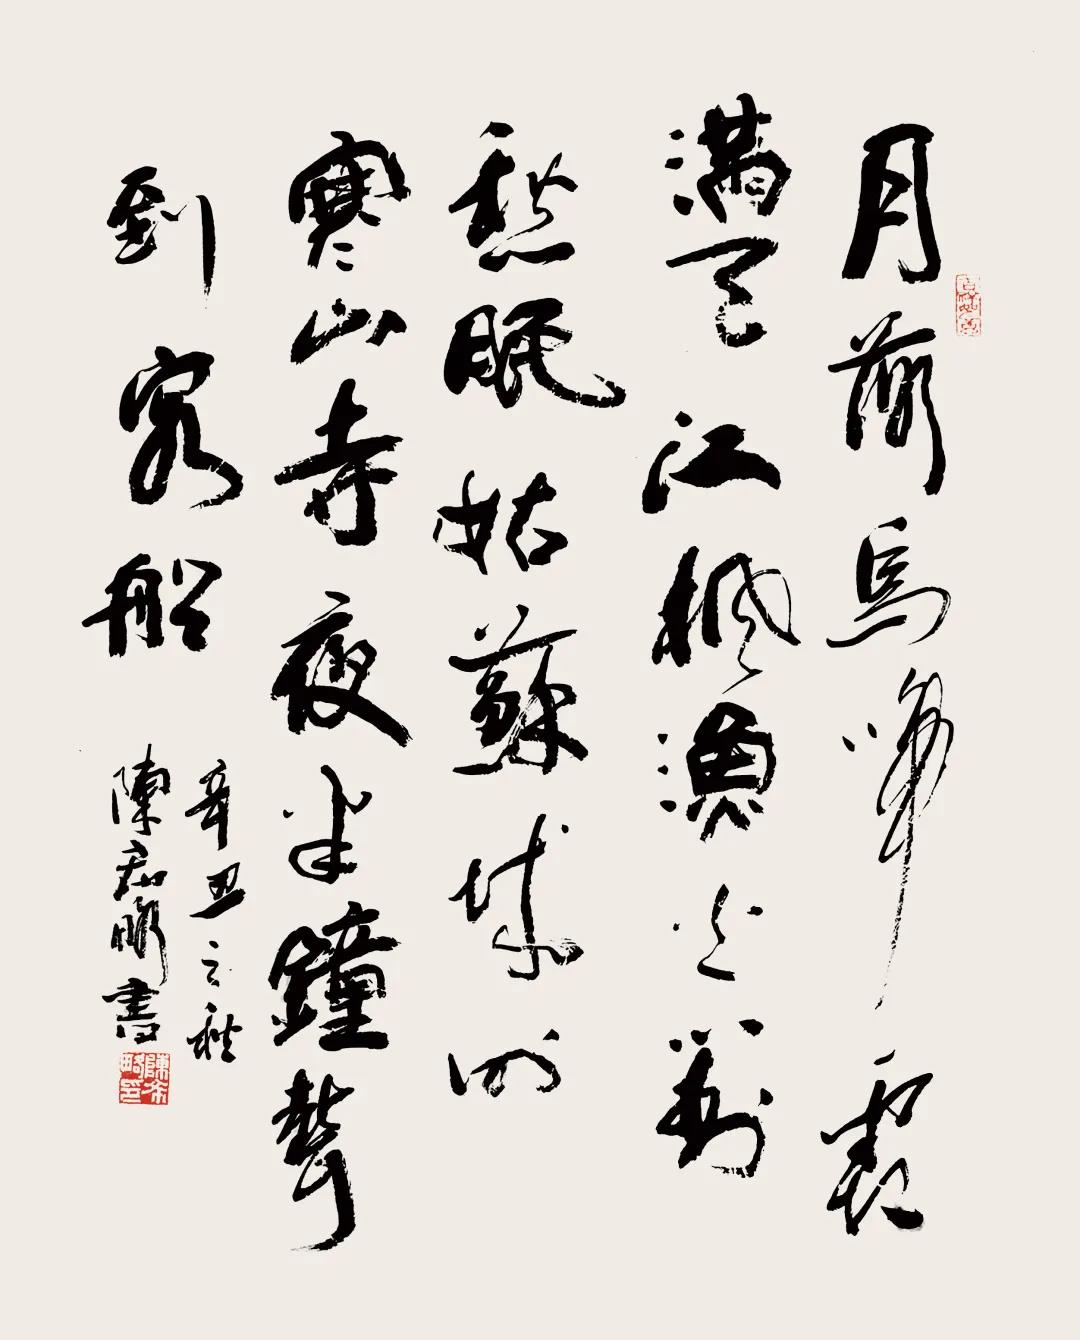 月落烏啼霜
滿天江楓漁火對
愁眠姑蘇城外
寒山寺夜半鐘聲
到客船
辛丑之秋
陳希畸書
陳希畸印